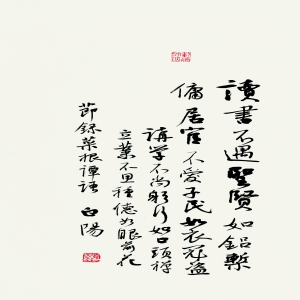 讀書不遇聖賢如鉛槧
傭居官不愛子民如衣冠盜
講學不尚躬行如口頭禪
立業不思種德如眼前花
節錄菜根譚語 白陽